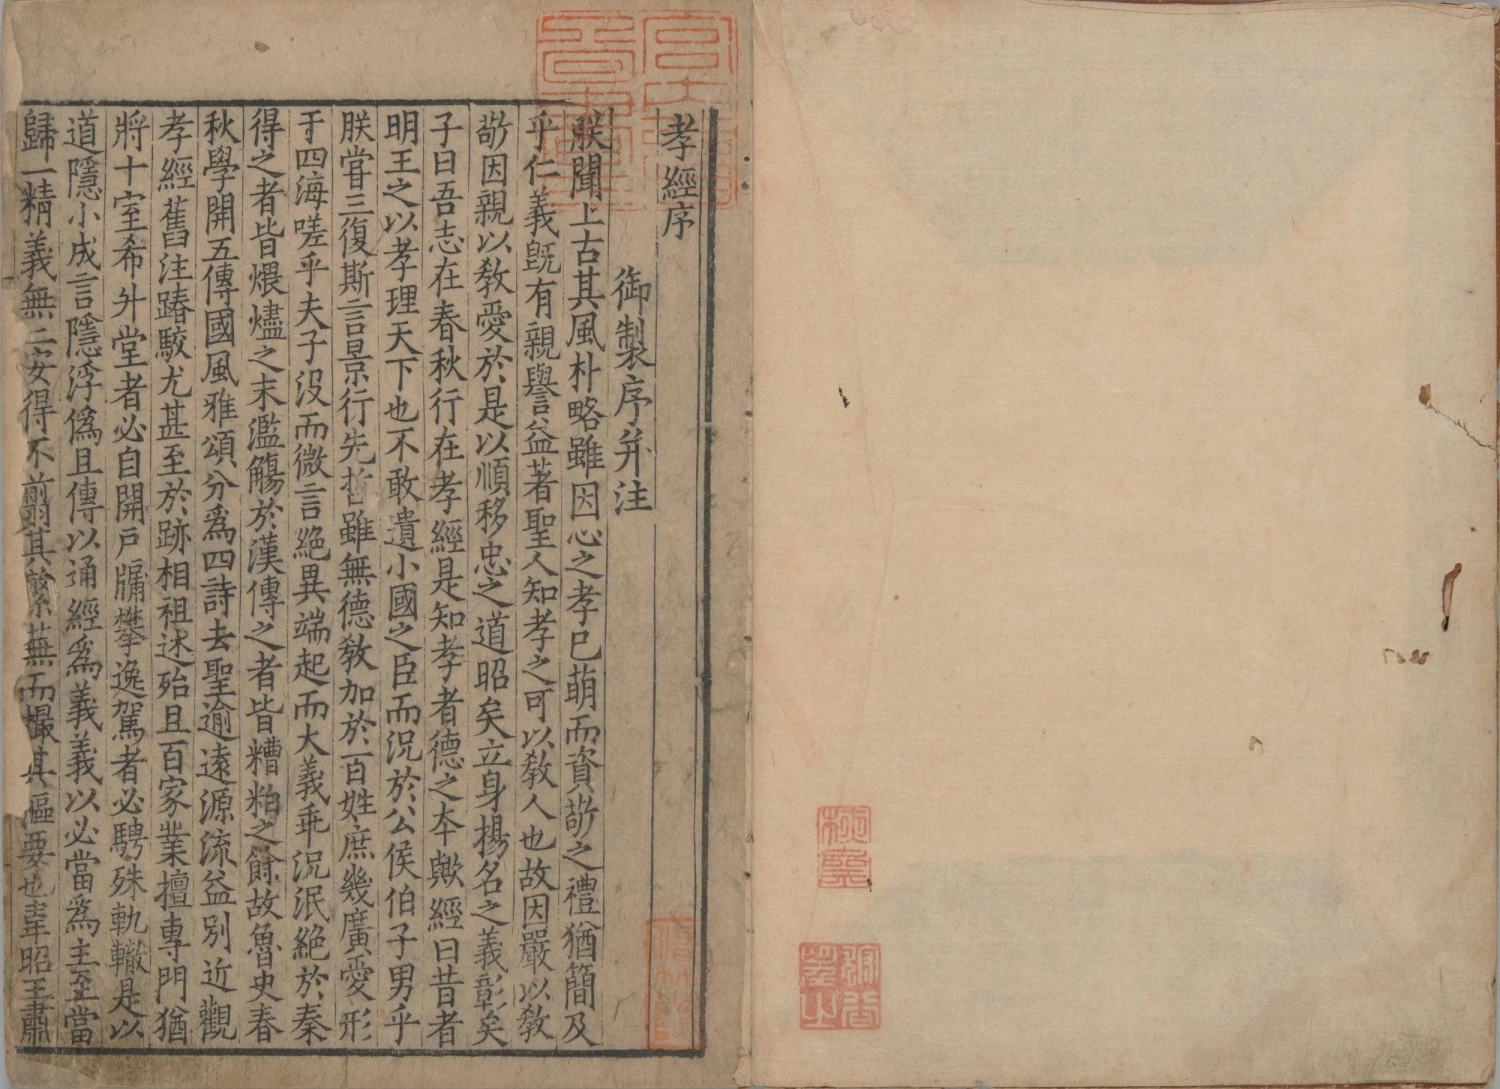 孝經序
御製序并注
朕聞上古其風朴略雖因心之孝已萌而資敬之禮猶簡及
乎仁義旣有親譽益著聖人知孝之可以敎人也故因嚴以敎
敬因親以敎愛於是以順移忠之道昭矣立身揚名之義彰矣
子曰吾志在春秋行在孝經是知孝者德之本歟經曰昔者
明王之以孝理天下也不敢遺小國之臣而況於公侯伯子男乎
朕甞三復斯言景行先哲雖無德敎加於百姓庶幾廣愛形
于四海嗟乎夫子沒而微言絶異端起而大義乖況泯絶於秦
得之者皆煨燼之末濫觴於漢傳之者皆糟粕之餘故魯史春
秋學開五傳國風雅頌分爲四詩去聖逾遠源流益別近觀
孝經舊注踳駮尤甚至於跡相祖述殆且百家業擅專門猶
將十室希升堂者必自開戶牖攀逸駕者必騁殊軌轍是以
道隱小成言隱浮僞且傳以通經爲義義以必當爲主至當
歸一精義無二安得不翦其繁蕪而撮其樞要也韋昭王肅